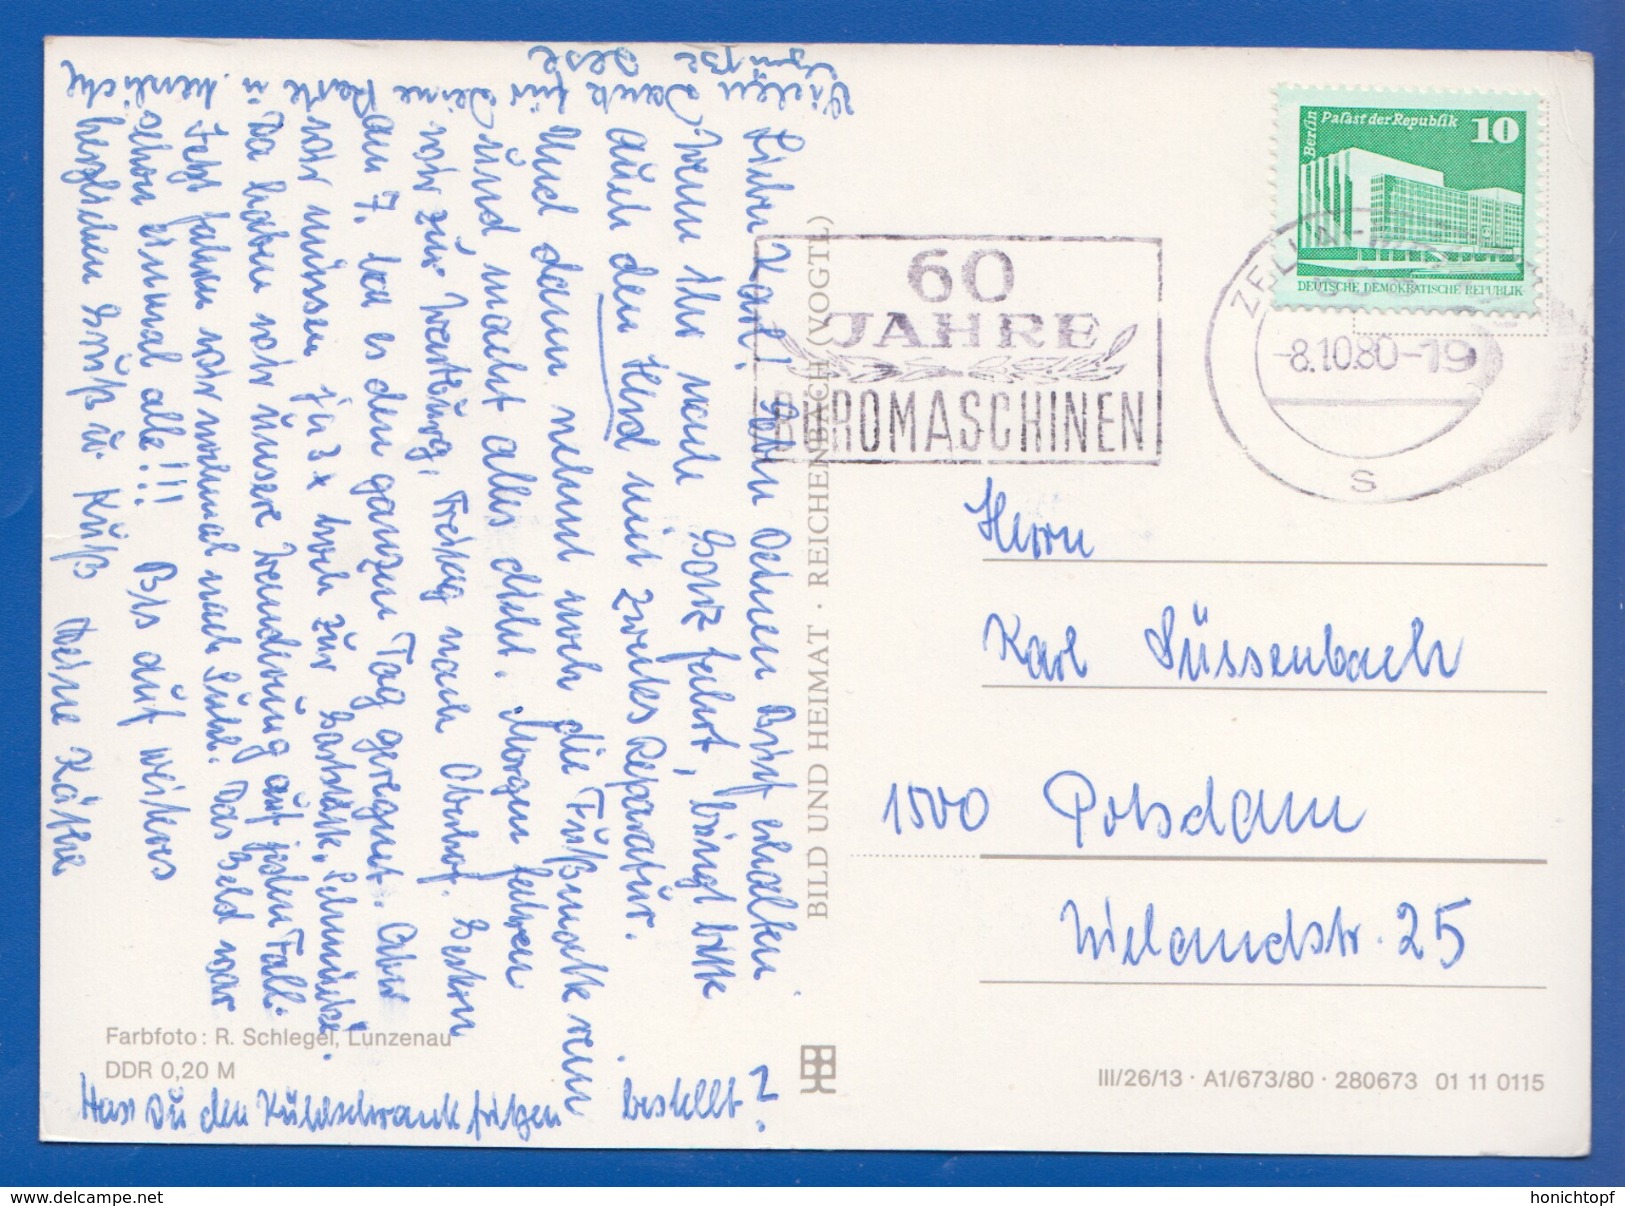 Lieber Karl! Haben Deinen Brief erhalten
Wenn Ihr nach Gorz fahrt, bringt bitte
auch den Herd mit zwecks Reparatur.
Und dann nehmt noch die Fußmatte rein
und macht alles dicht. Morgen fahren
wir zur Wartburg, Freitag nach Oberhof. Gestern
am 7. hat es den ganzen Tag geregnet. Aber
wir müssen ja 3 x hoch zur Gaststätte.
Da haben wir unsere Wanderung auf jeden Fall.
Jetzt fahren wir nochmal nach Suhl. Das Geld war
schon einmal alle!!! Bis auf weiteres
herzlichen Gruß u. Kuß Deine Käthe
Vielen Dank für Deine Karte u. herzliche
Grüße
Hast Du den Kühlschrank fritzen bestellt?
BILD UND HEIMAT · REICHENBACH (VOGTL)
Farbfoto: R. Schlegel, Lunzenau
DDR 0,20 M
60
JAHRE
BÜROMASCHINEN
Berlin
Palast der Republik 10
DEUTSCHE DEMOKRATISCHE REPUBLIK
ZELLA-MEHLIS
-8.10.80-19
s
Herrn
Karl Süssenbach
1500 Potsdam
Wielandstr. 25
III/26/13 · A1/673/80 · 280673 01 11 0115
honichtopf
www.delcampe.net